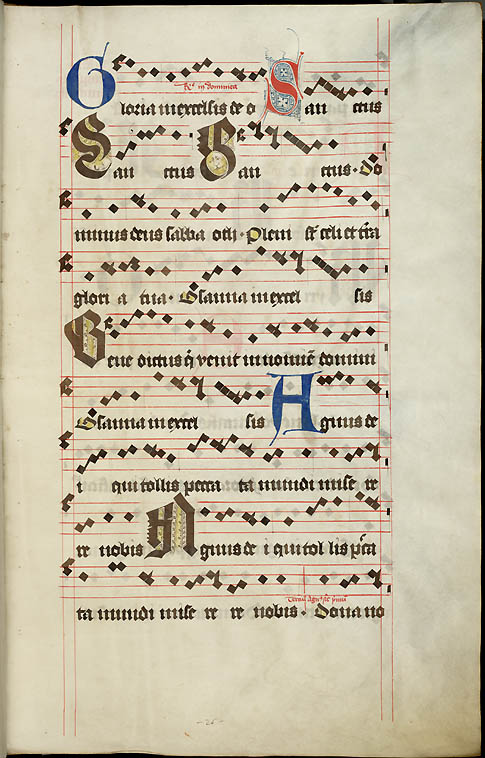 Gloria in excelsis de o San ctus
San ctus San ctus . do
minus deus saba oth . Pleni st celi et tra
glori a tua . Osanna in excel sis
Bene dictus q venit in nomie domini
Osanna in excel sis Agnus de
i qui tollis pecca ta mundi mise re
re nobis Agnus de i qui tol lis pcca
ta mundi mise re re nobis . Dona no
26